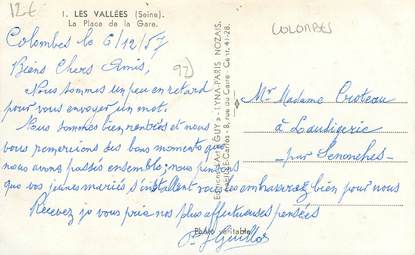 12€
1. LES VALLÉES (Seine).
La Place de la Gare.
COLOMBES
92)
Colombes le 6/12/57
Biens Chers Amis,
Nous sommes un peu en retard
pour vous envoyer un mot.
Nous sommes bien rentrés et nous
vous remercions des bons moments que
nous avons passés ensemble; nous pensons
que vos jeunes mariés s'installent vous les embrasserez bien pour nous
Recevez je vous prie nos plus affectueuses pensées
Editions d'Art "GUY" - LYNA-PARIS NOZAIS.
8, rue du Caire - Cent. 41-28.
Mr Madame Croteau
à Laudigerie
par Senonches
Photo véritable.